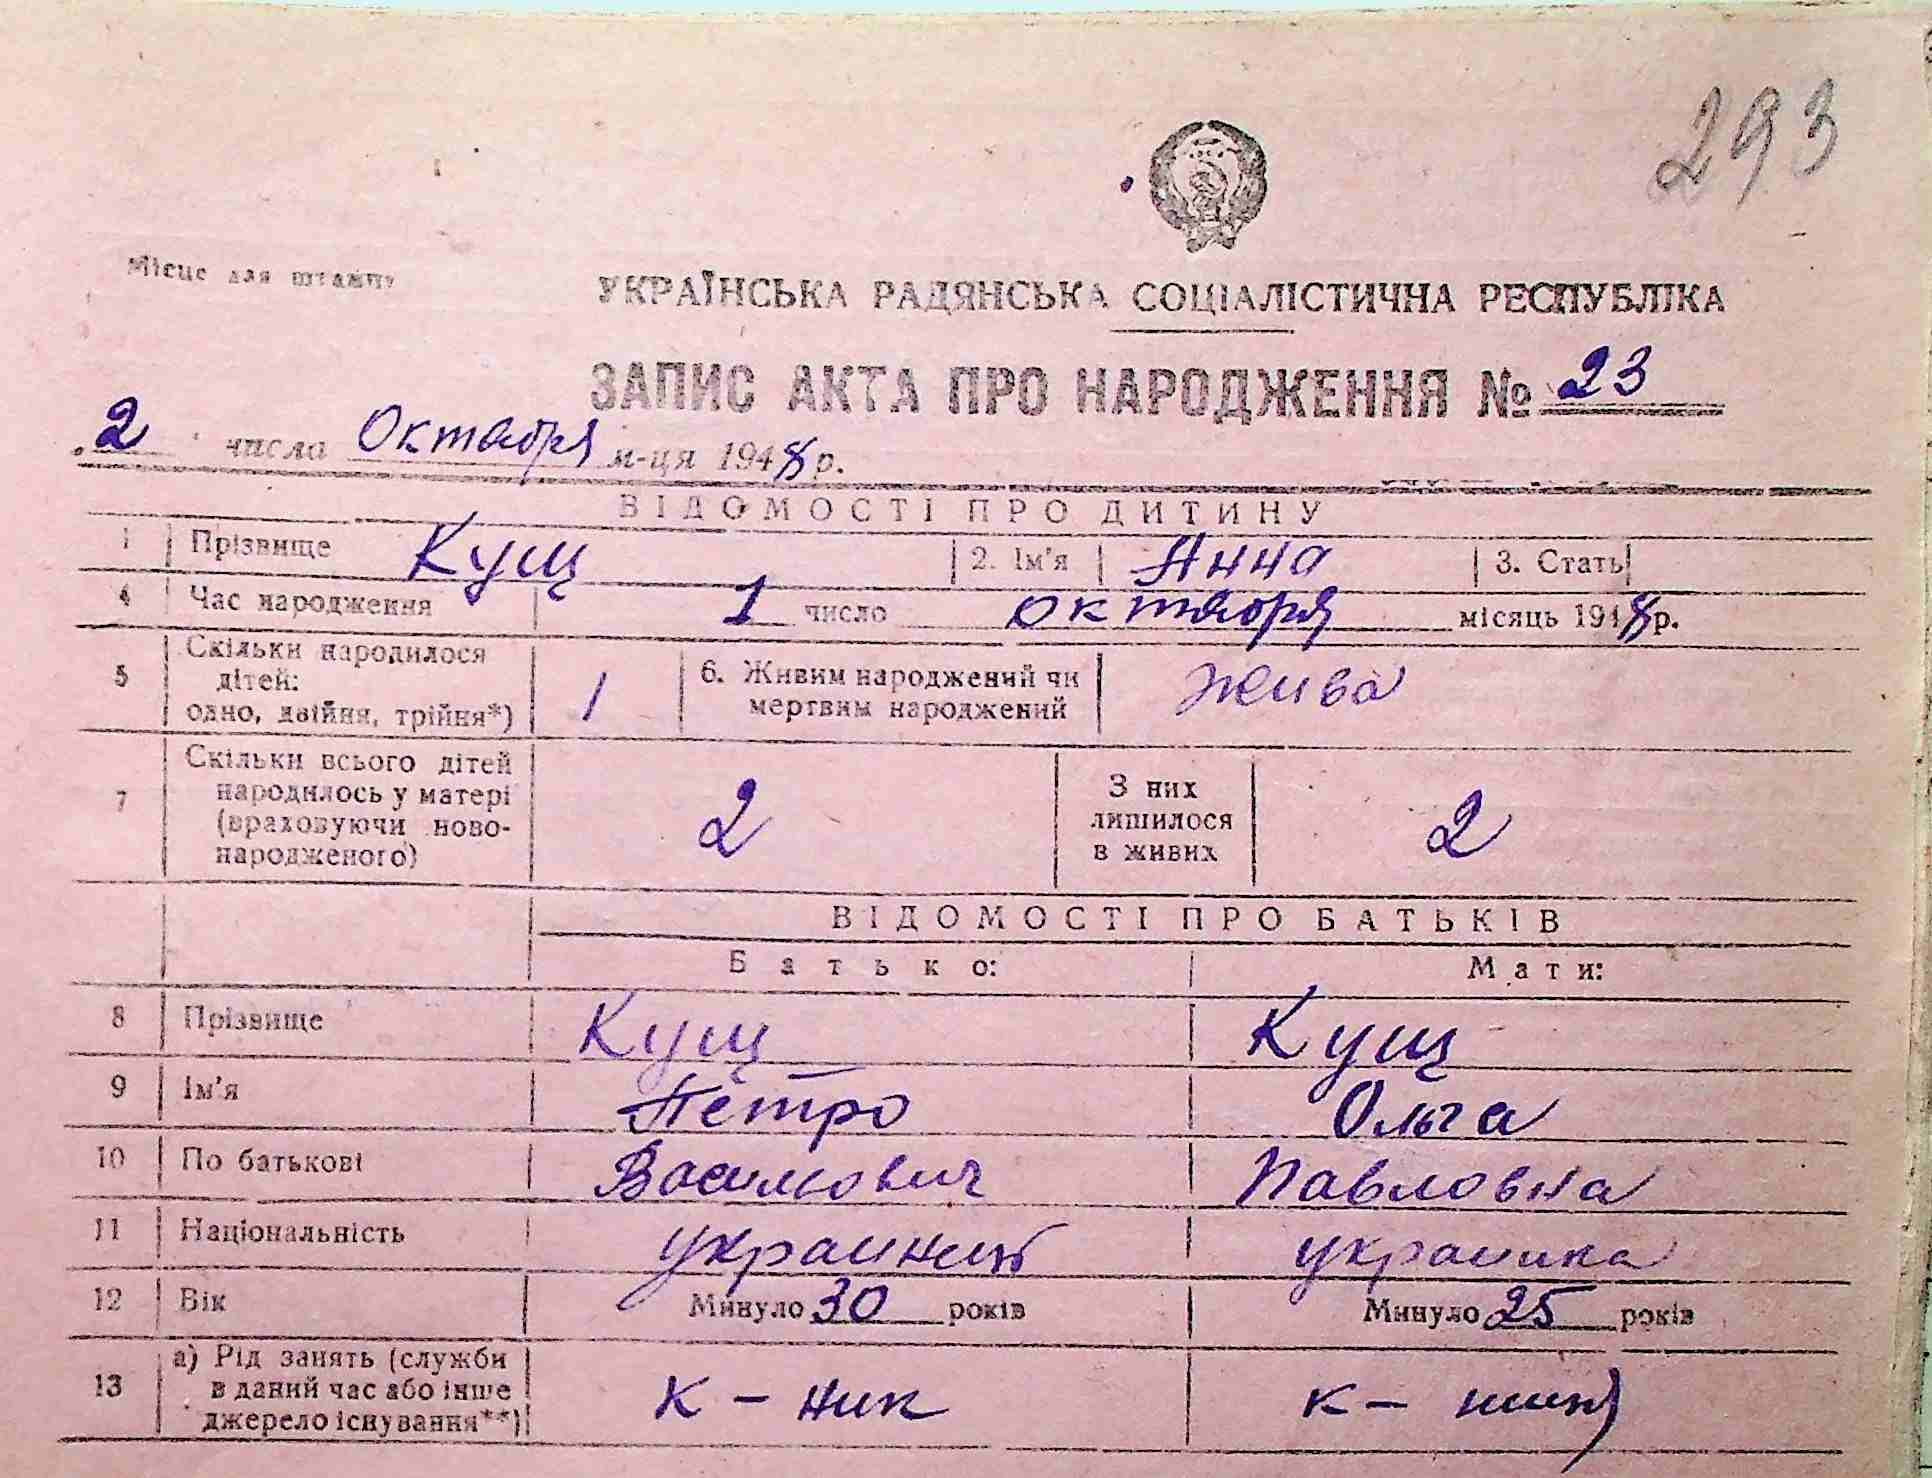 293
Місце для штампу
УКРАЇНСЬКА РАДЯНСЬКА СОЦІАЛІСТИЧНА РЕСПУБЛІКА
ЗАПИС АКТА ПРО НАРОДЖЕННЯ № 23
2 числа Октября м-ця 1948 р.
ВІДОМОСТІ ПРО ДИТИНУ
1 Прізвище Кущ 2. Ім'я Анна 3. Стать
4 Час народження 1 число октября місяць 1948 р.
5 Скільки народилося дітей: одно, двійня, трійня*) 1 6. Живим народжений чи мертвим народжений жива
7 Скільки всього дітей народилось у матері (враховуючи ново-народженого) 2 З них лишилося в живих 2
ВІДОМОСТІ ПРО БАТЬКІВ
Батько: Мати:
8 Прізвище Кущ Кущ
9 Ім'я Петро Ольга
10 По батькові Василович Павловна
11 Національність украинец украинка
12 Вік Минуло 30 років Минуло 25 років
13 а) Рід занять (служби в даний час або інше джерело існування**) к-ник к-ница